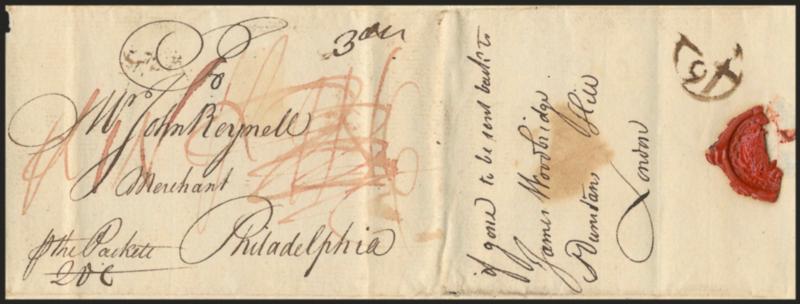 To
Mr. John Reynell
Merchant
Philadelphia
⅌ the Packett
if gone to be sent back to
James Woodbridge
St Dunstans Hill
London